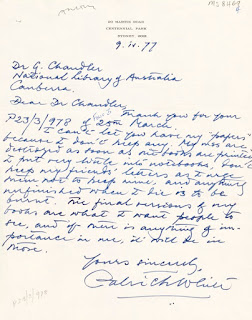 MS 8469
20 MARTIN ROAD
CENTENNIAL PARK
SYDNEY 2021
9.iv.77
Dr G. Chandler
National Library of Australia
Canberra.
Dear Dr Chandler,
Thank you for your
P23/3/978 of 25th March.
I can't let you have my "papers"
because I don't keep any. My MSS are
destroyed as soon as the books are printed.
I put very little into notebooks, don't
keep my friends' letters as I urge
them not to keep mine, and anything
unfinished when I die is to be
burnt. The final versions of my
books are what I want people to
see, and if there is anything of im-
portance in me, it will be in
those.
Yours sincerely,
Patrick White